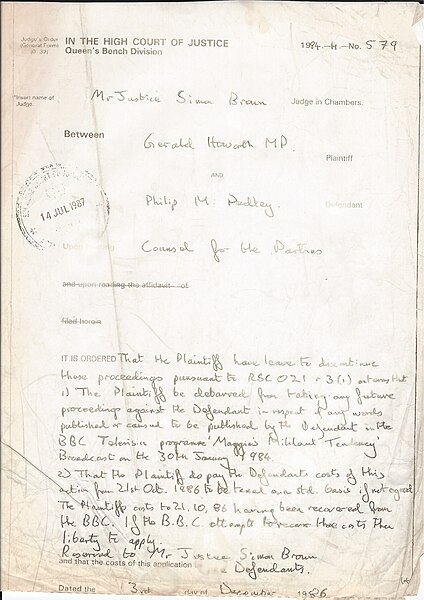 Judge's Order
(General Form)
(O. 32)
IN THE HIGH COURT OF JUSTICE
Queen's Bench Division
1984.-H-No. 579
*Insert name of
Judge.
Mr Justice Simon Brown Judge in Chambers.
Between
Gerald Howarth MP.
Plaintiff
AND
Philip M. Pedley.
Defendant
14 JUL 1987
Upon hearing Counsel for the Parties
and upon reading the affidavit of
filed herein
IT IS ORDERED That the Plaintiff have leave to discontinue
those proceedings pursuant to RSC O21 r 3(1) on terms that
1) The Plaintiff be debarred from taking any future
proceedings against the Defendant in respect of any words
published or caused to be published by the Defendant in the
BBC Television programme 'Maggie's Militant Tendency
Broadcast on the 30th January 1984.
2) That the Plaintiff do pay the Defendants costs of this
action from 21st Oct. 1986 to be taxed on a std. basis if not agreed
The Plaintiff costs to 21.10.86 having been recovered from
the BBC. If the B.B.C. attempt to recover those costs then
liberty to apply.
Reserved to Mr Justice Simon Brown
and that the costs of this application Defendants.
Dated the 3rd day of December 1986